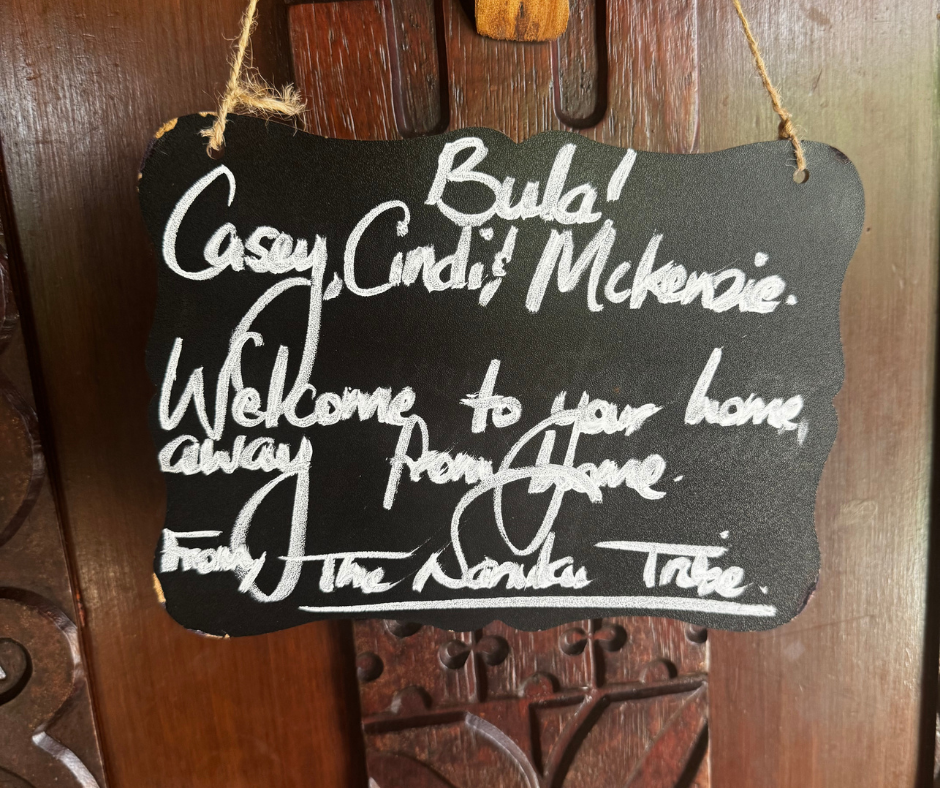 Bula!
Casey, Cindi & Mckenzie.
Welcome to your home,
away from Home.
From The Nanuku Tribe.